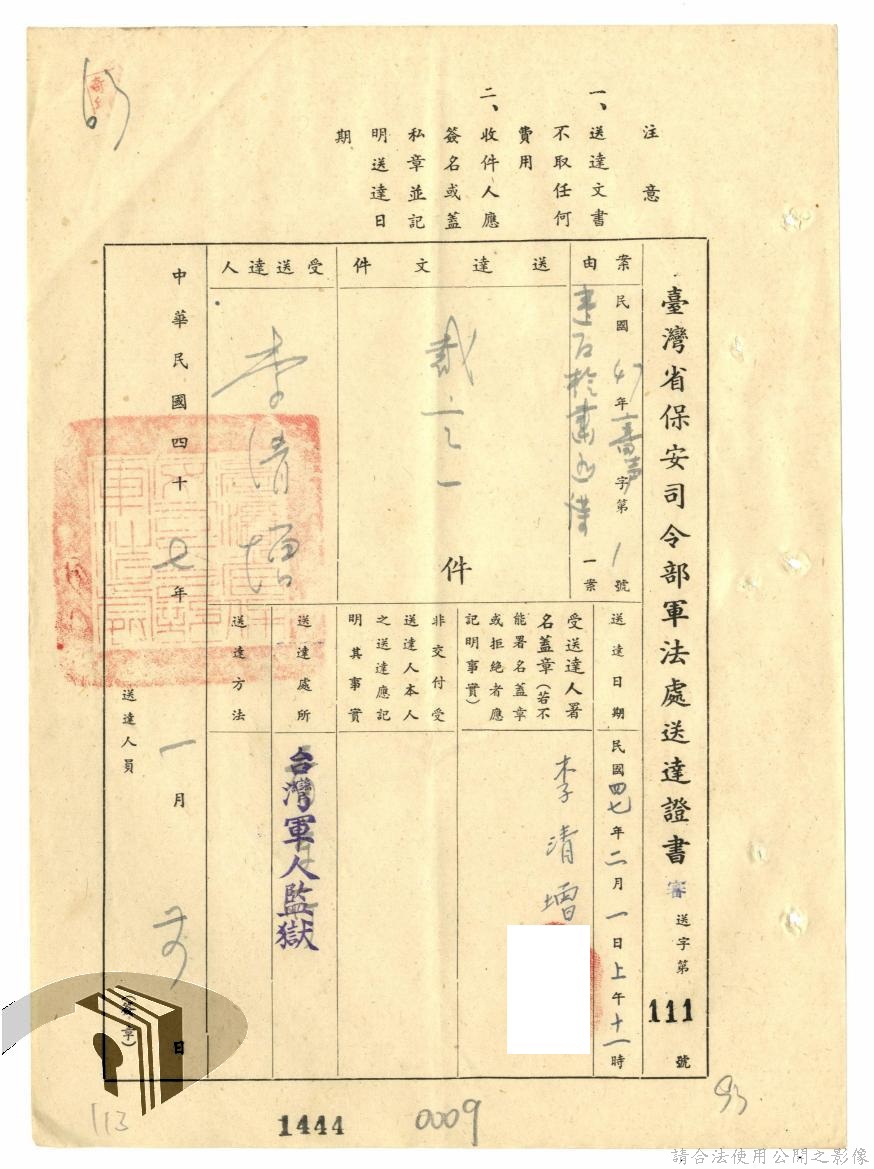 注意
一、送達文書
不取任何
費用
二、收件人應
簽名或蓋
私章並記
明送達日
期
臺灣省保安司令部軍法處送達證書 審 送字第 111 號
案由
民國47年 字第1號
一案
送達文件
裁定一件
受送達人
李清增
送達日期
民國四七年二月一日上午十一時
受送達人署
名蓋章(若不
能署名蓋章
或拒絕者應
記明事實)
李清增
非交付受
送達人本人
之送達應記
明其事實
送達處所
台灣軍人監獄
送達方法
中華民國四十七年一月 日
送達人員 (簽章)
113
1444
0009
93
請合法使用公開之影像